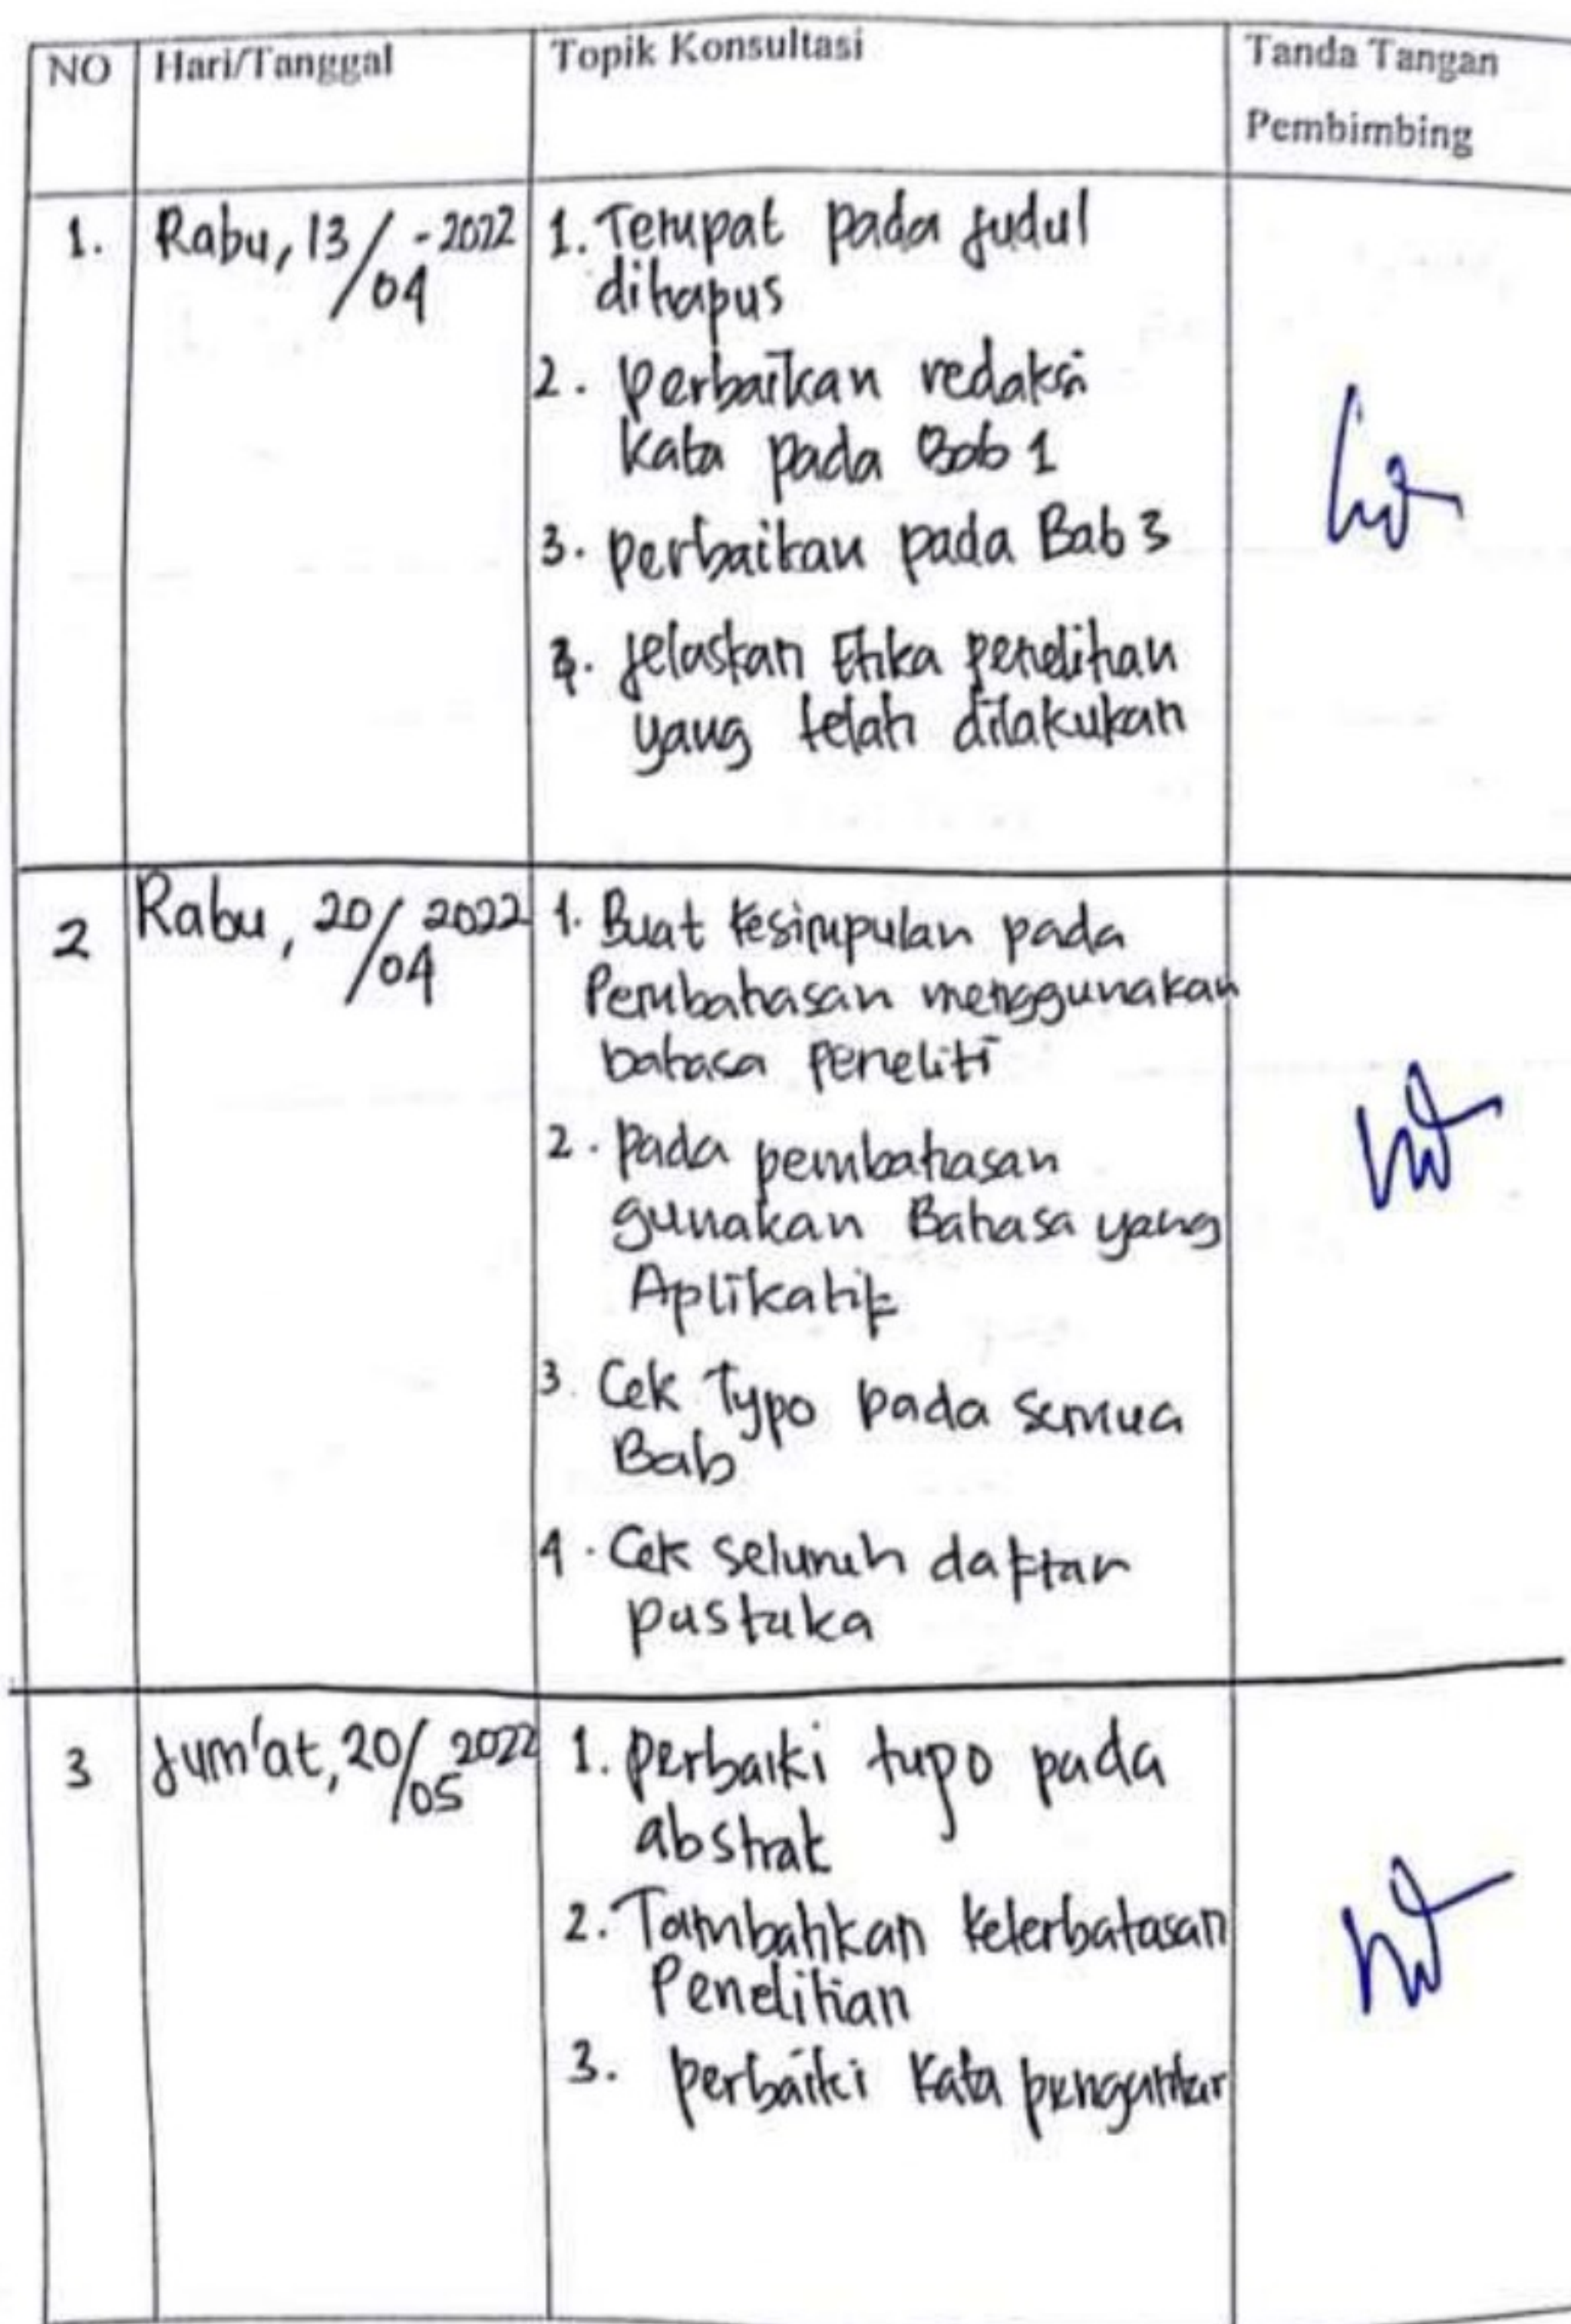 NO Hari/Tanggal Topik Konsultasi Tanda Tangan
Pembimbing
1. Rabu, 13/04-2022 1. Tempat pada judul
dihapus
2. perbaikan redaksi
kata pada Bab 1
3. perbaikan pada Bab 3
4. jelaskan Etika penelitian
yang telah dilakukan
2 Rabu, 20/04 2022 1. Buat kesimpulan pada
Pembahasan menggunakan
bahasa peneliti
2. pada pembahasan
gunakan Bahasa yang
Aplikatif
3. Cek Typo pada semua
Bab
4. Cek seluruh daftar
pustaka
3 Jum'at, 20/05 2022 1. perbaiki typo pada
abstrak
2. Tambahkan keterbatasan
Penelitian
3. perbaiki kata pengantar